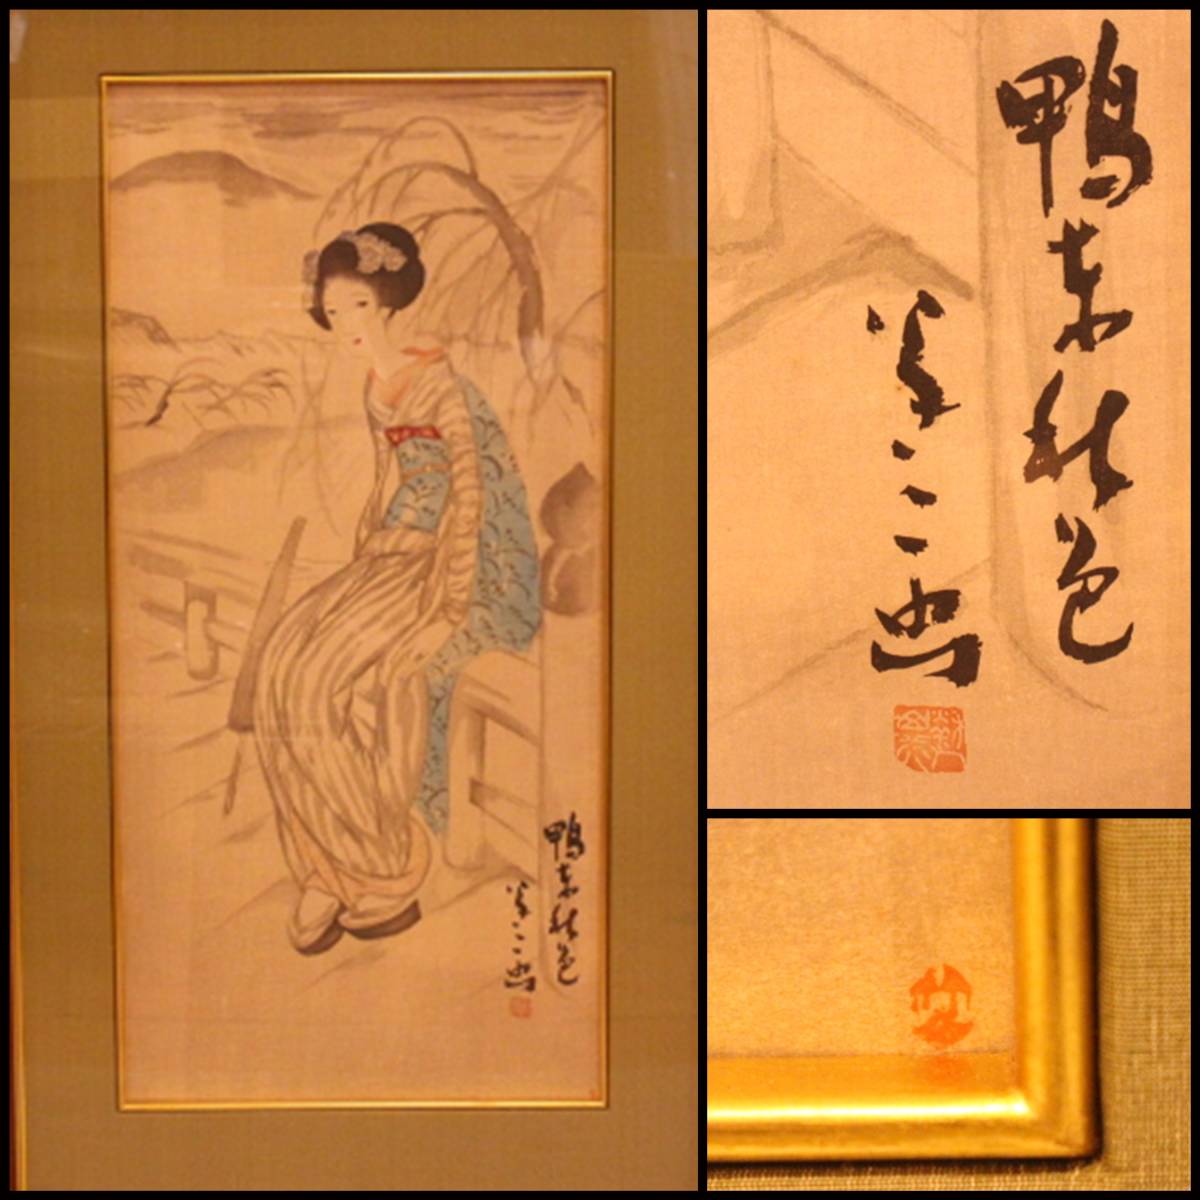 鴨東秋色
夢二画
鴨東秋色
夢二画